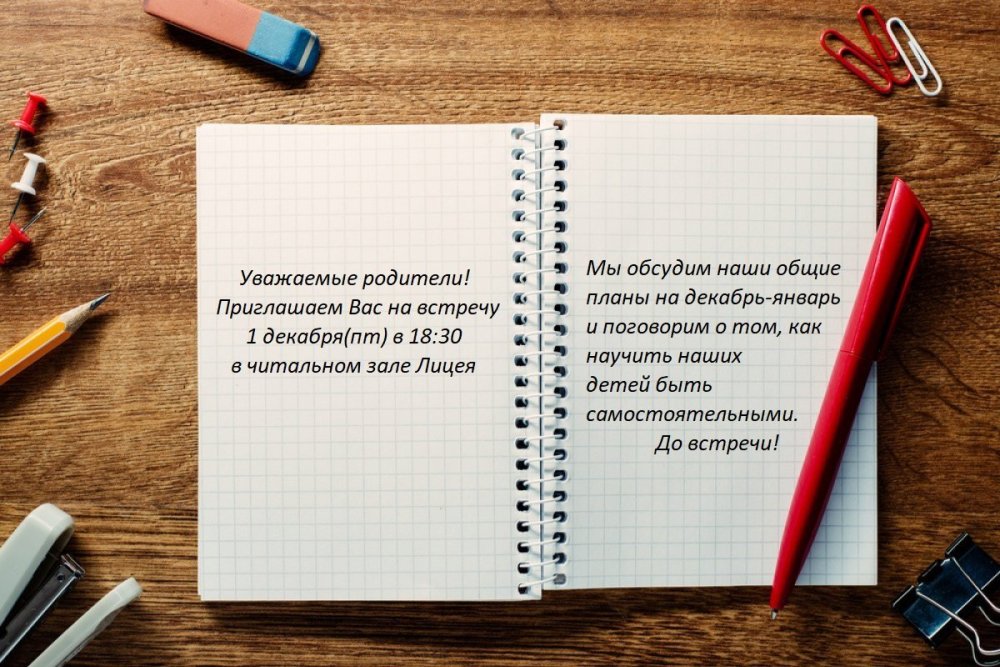 Уважаемые родители!
Приглашаем Вас на встречу
1 декабря(пт) в 18:30
в читальном зале Лицея
Мы обсудим наши общие
планы на декабрь-январь
и поговорим о том, как
научить наших
детей быть
самостоятельными.
До встречи!